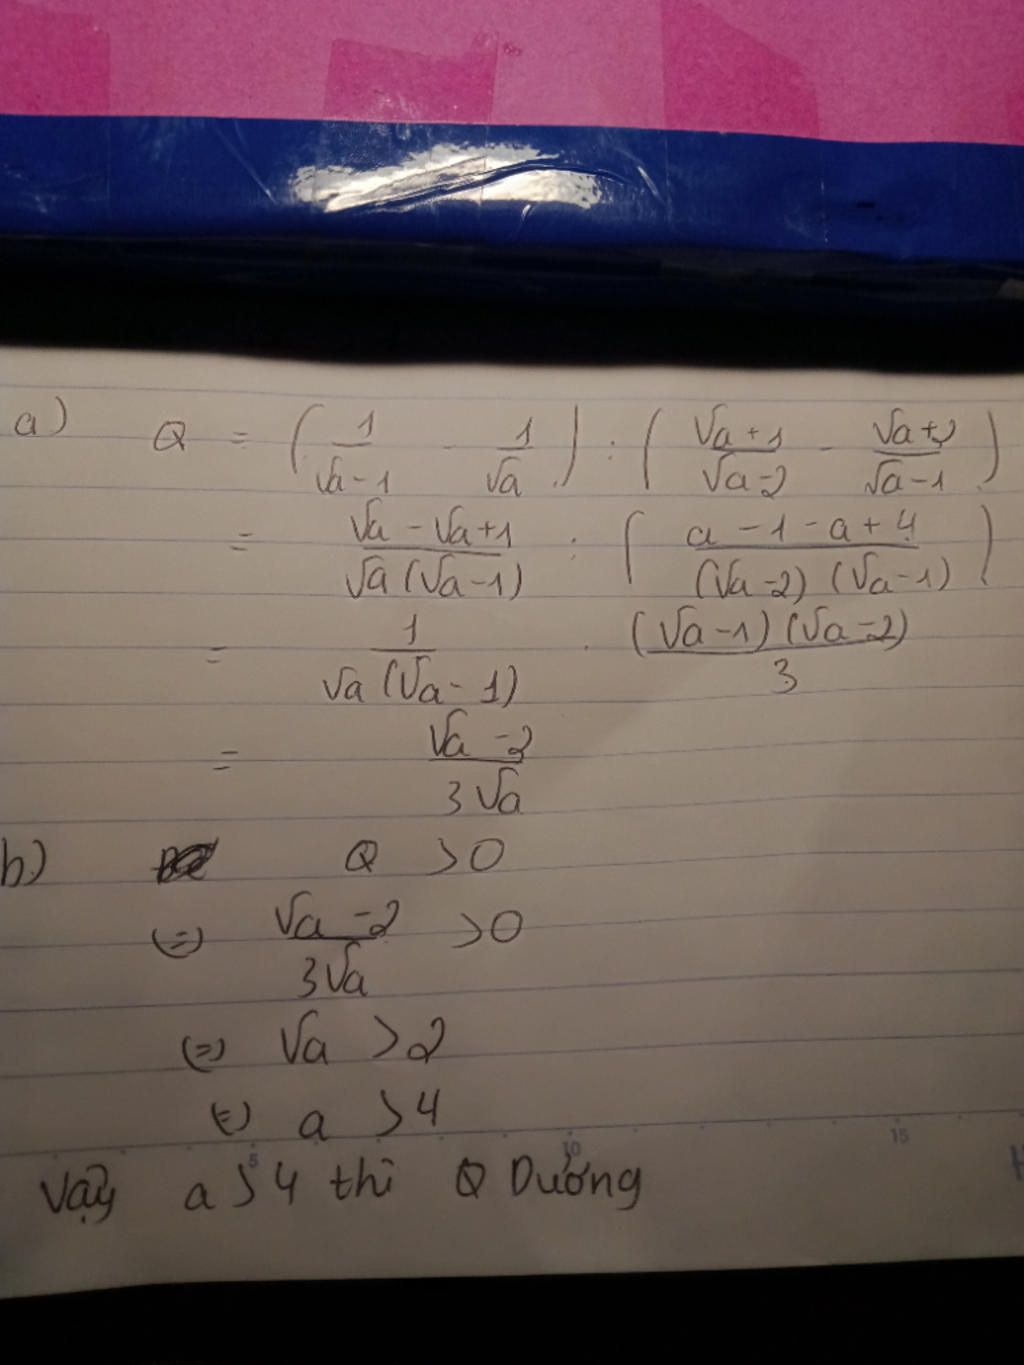 a) Q = ( 1/(√a-1) - 1/√a ) : ( (√a+1)/(√a-2) - (√a+2)/(√a-1) )
= (√a-√a+1)/(√a(√a-1)) : ( (a-1-a+4)/((√a-2)(√a-1)) )
= 1/(√a(√a-1)) . ((√a-1)(√a-2))/3
= (√a-2)/(3√a)
b) Q >0
(=) (√a-2)/(3√a) >0
(=) √a >2
(=) a >4
5 10 15
Vậy a>4 thì Q Dương